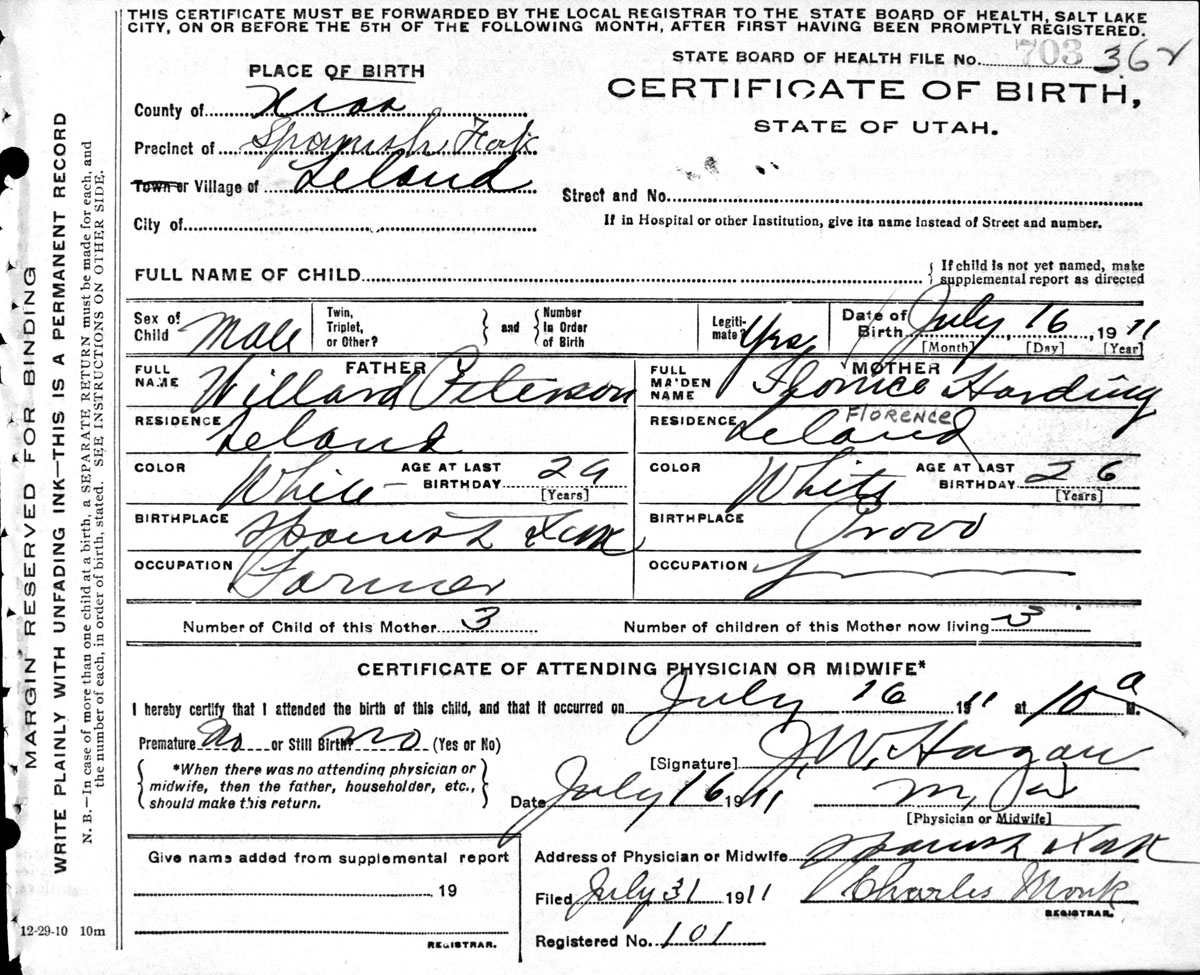 THIS CERTIFICATE MUST BE FORWARDED BY THE LOCAL REGISTRAR TO THE STATE BOARD OF HEALTH, SALT LAKE
CITY, ON OR BEFORE THE 5TH OF THE FOLLOWING MONTH, AFTER FIRST HAVING BEEN PROMPTLY REGISTERED.
STATE BOARD OF HEALTH FILE No. 703 362
PLACE OF BIRTH
CERTIFICATE OF BIRTH,
STATE OF UTAH.
County of
Precinct of Spanish Fork
Town or Village of Leland
Street and No.
City of
If in Hospital or other Institution, give its name instead of Street and number.
FULL NAME OF CHILD
{ If child is not yet named, make
supplemental report as directed
Sex of Child Male
Twin, Triplet, or Other? } and { Number In Order of Birth
Legitimate? Yes
Date of Birth July 16, 1911
[Month] [Day] [Year]
FATHER
FULL NAME Willard Peterson
MOTHER
FULL MAIDEN NAME Harding
FLORENCE
RESIDENCE Leland
RESIDENCE Leland
COLOR White AGE AT LAST BIRTHDAY 29 [Years]
COLOR White AGE AT LAST BIRTHDAY 26 [Years]
BIRTHPLACE Spanish Fork
BIRTHPLACE Provo
OCCUPATION Farmer
OCCUPATION
Number of Child of this Mother 3 Number of children of this Mother now living 3
CERTIFICATE OF ATTENDING PHYSICIAN OR MIDWIFE*
I hereby certify that I attended the birth of this child, and that it occurred on July 16 1911 at 10 a M.
Premature No or Still Birth? No (Yes or No)
{ *When there was no attending physician or
midwife, then the father, householder, etc.,
should make this return. }
[Signature] J. W. Hagan
Date July 16 1911 M. D.
[Physician or Midwife]
Give name added from supplemental report
19
REGISTRAR.
Address of Physician or Midwife Spanish Fork
Filed July 31 1911 Charles Monk
REGISTRAR.
Registered No. 101
12-29-10 10m
MARGIN RESERVED FOR BINDING
WRITE PLAINLY WITH UNFADING INK—THIS IS A PERMANENT RECORD
N. B.—In case of more than one child at a birth, a SEPARATE RETURN must be made for each, and
the number of each, in order of birth, stated. SEE INSTRUCTIONS ON OTHER SIDE.